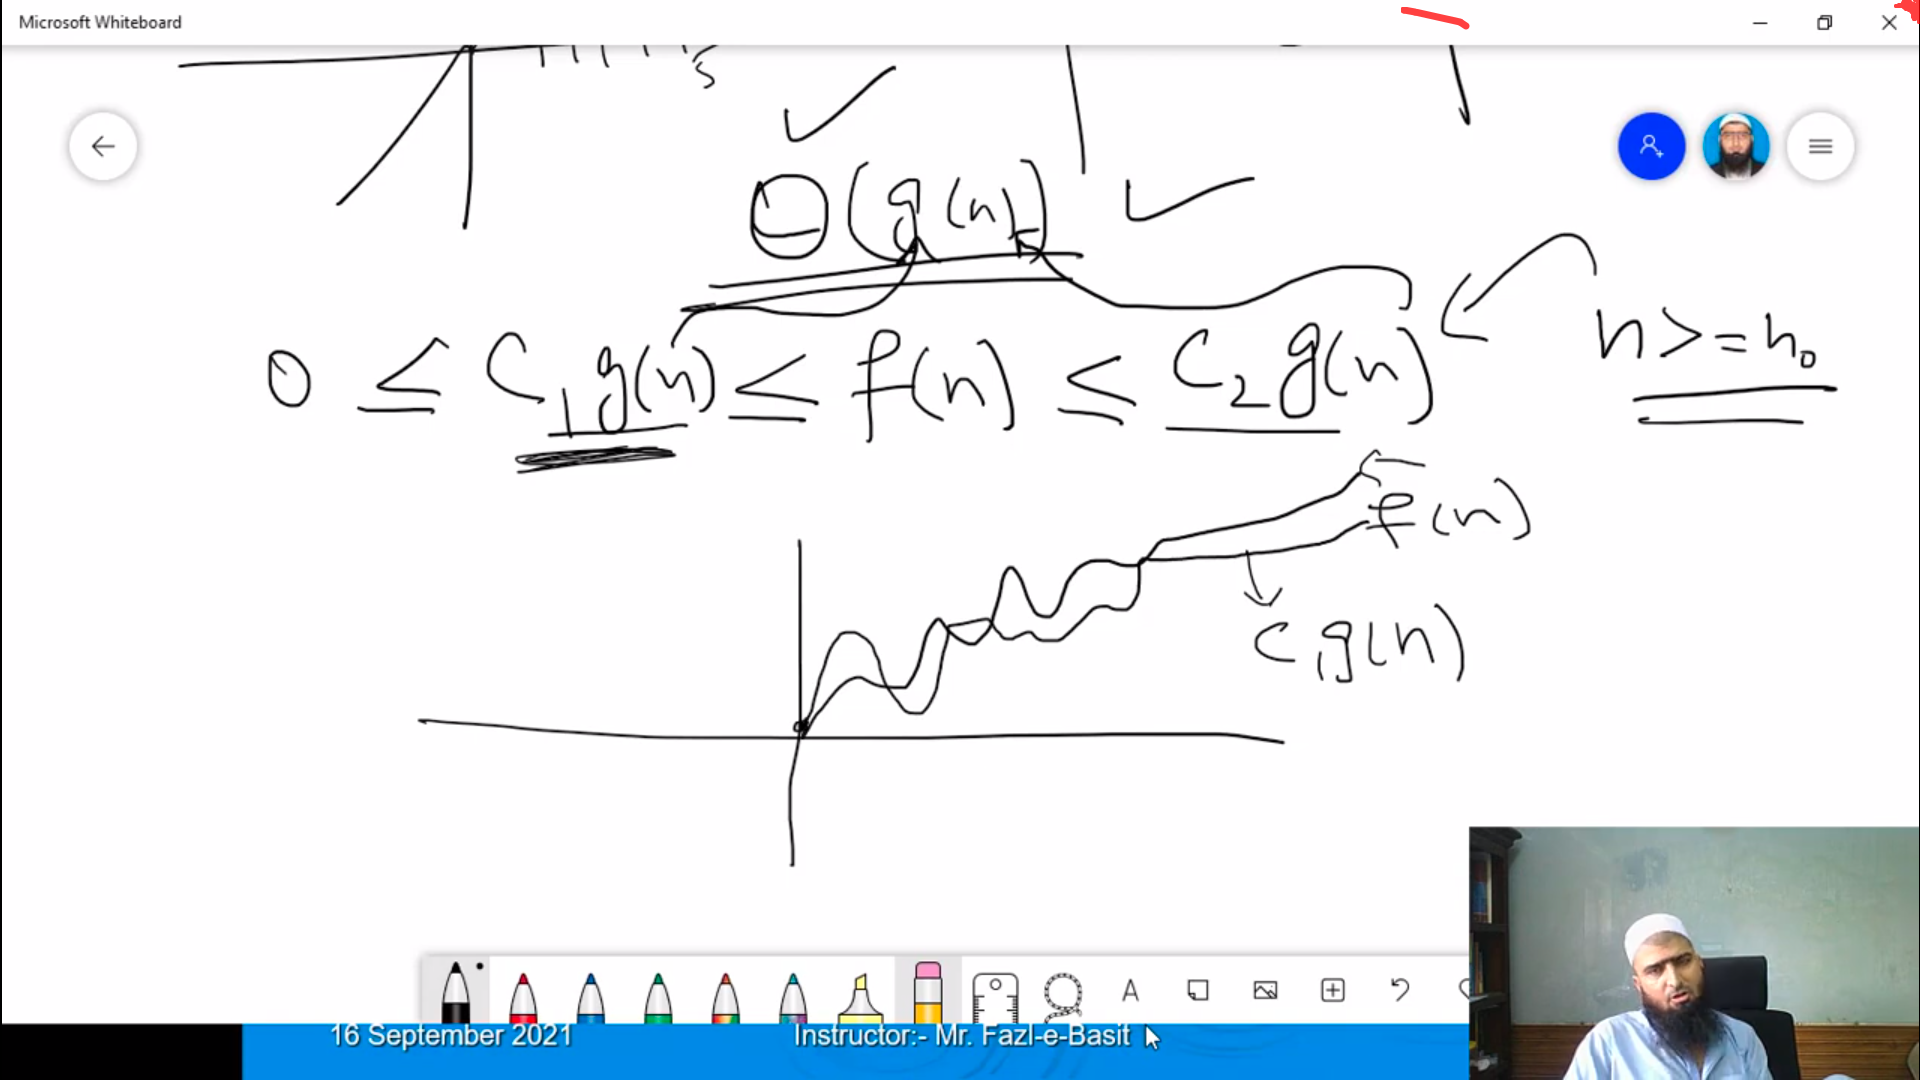 Microsoft Whiteboard
5
Θ(g(n))
0 ≤ C₁g(n) ≤ f(n) ≤ C₂g(n) n>=n₀
f(n)
C₁g(n)
A
16 September 2021 Instructor:- Mr. Fazl-e-Basit